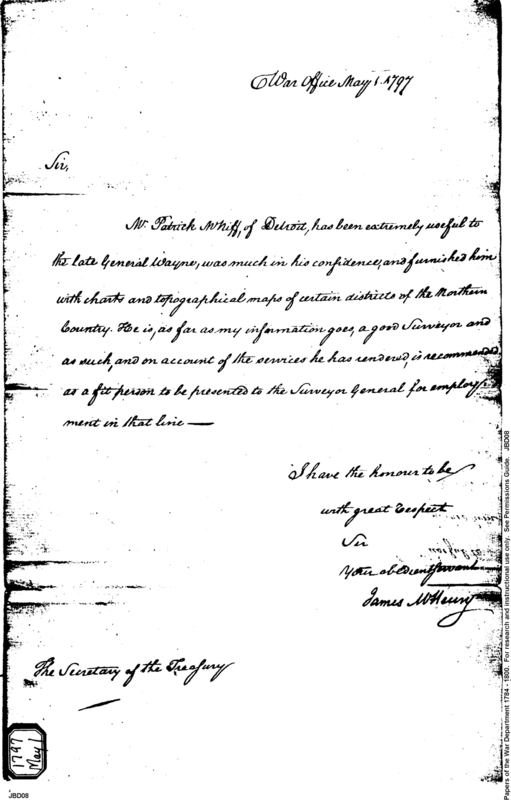 War Office May 1. 1797
Sir,
Mr. Patrick McNiff, of Detroit, has been extremely useful to
the late General Wayne, was much in his confidence, and furnished him
with charts and topographical maps of certain districts of the Northern
Country. He is, as far as my information goes, a good Surveyor and
as such, and on account of the services he has rendered, is recommended
as a fit person to be presented to the Surveyor General for employ-
ment in that line —
I have the honour to be
with great respect
Sir
Your obedient servant
James McHenry
The Secretary of the Treasury
1797
May 1
JBD08
Papers of the War Department 1784 - 1800. For research and instructional use only. See Permissions Guide. JBD08